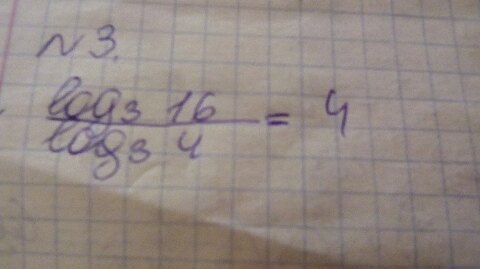 №3.
log₃ 16 / log₃ 4 = 4